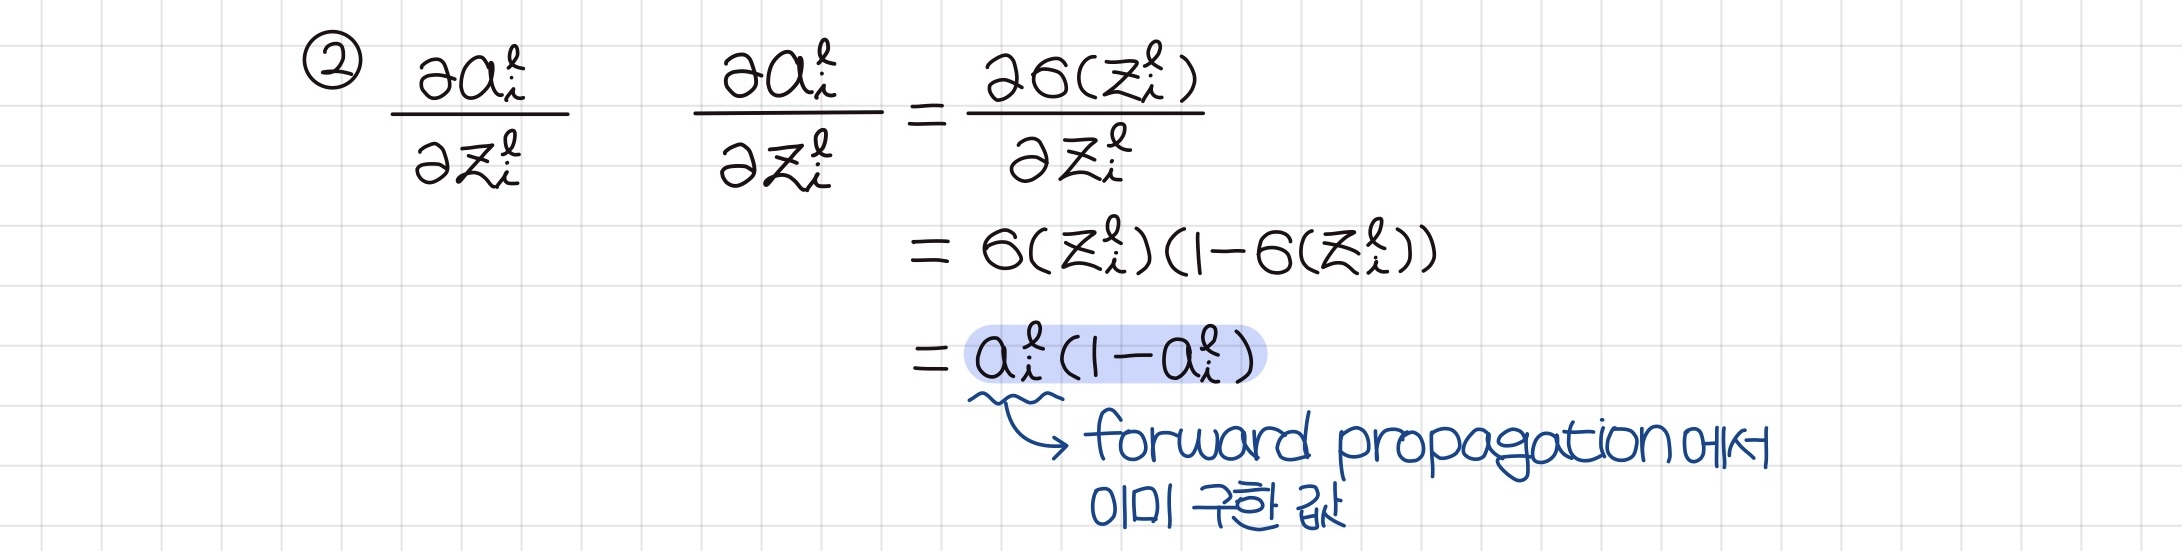 ② ∂aᵢˡ/∂zᵢˡ ∂aᵢˡ/∂zᵢˡ = ∂σ(zᵢˡ)/∂zᵢˡ
= σ(zᵢˡ)(1-σ(zᵢˡ))
= aᵢˡ(1-aᵢˡ)
→ forward propagation에서
이미 구한 값